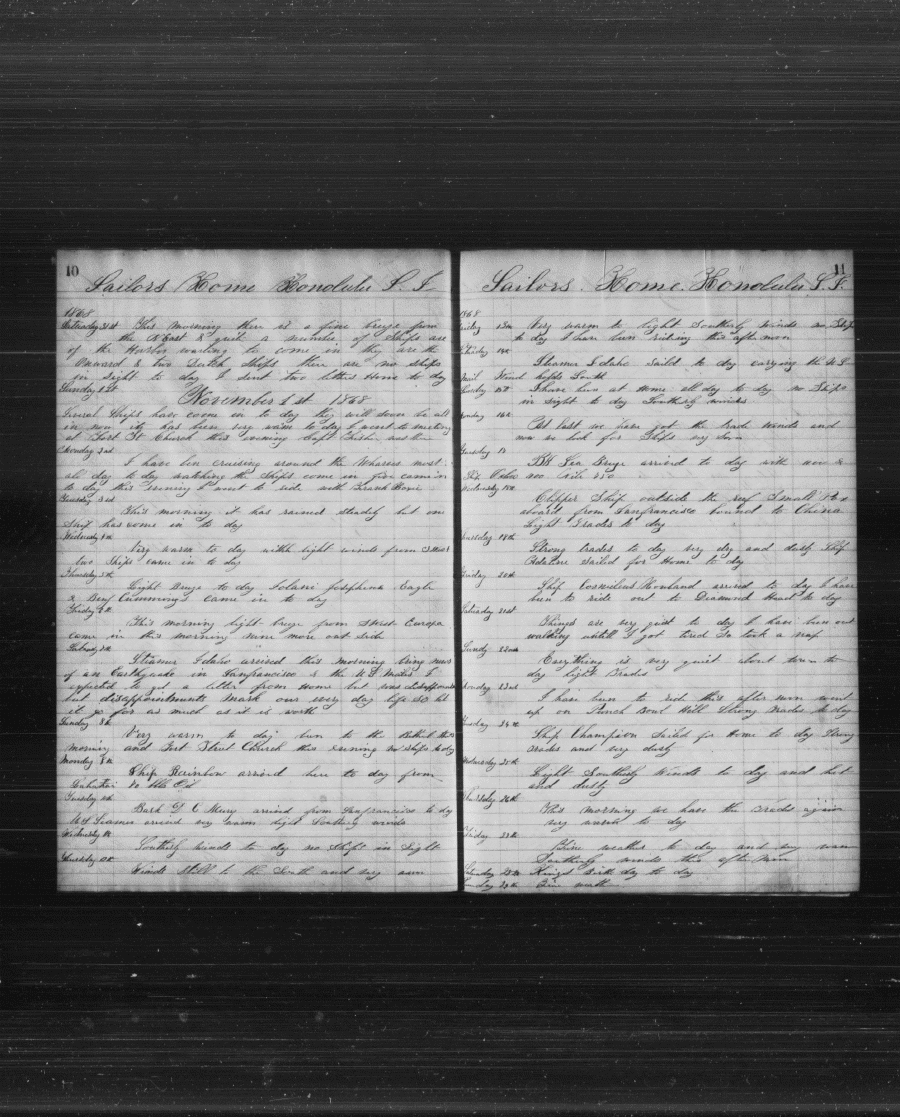 10
Sailors Home Honolulu S. I.
1868
Saturday 31st This morning there is a fine breeze from
the N East & quite a number of Ships are
of the Harbor waiting to come in they are the
Onward & two Dutch Ships there are no ships
in sight to day I sent two letters Home to day
Sunday 1st
November 1st 1868
Several Ships have come in to day they will soon be all
in now it has been very warm to day I went to meeting
at Fort St Church this evening Capt
Monday 2nd
I have ben cruising around the Wharves most
all day to day watching the Ships come in five came in
to day this evening I went to ride with
Tuesday 3rd
This morning it has rained steady but one
Ship has come in to day
Wednesday 4th
Very warm to day with light winds from
two Ships came in to day
Thursday 5th
Light Breeze to day Josephine Eagle
& Benj Cummings came in to day
Friday 6th
This morning light breeze from Europa
came in this morning nine more out side
Saturday 7th
Steamer Idaho arrived this morning bring news
of an Earthquake in Sanfrancisco & the U S I
expected to get a letter from Home but was disappointed
but disappointments mark our every day life so let
it go for as much as it is worth
Sunday 8th
Very warm to day ben to the Bethel this
morning and Fort Street Church this evening no ships to day
Monday 9th
Ship Rainbow arrived here to day from
Tuesday 10th
Bark D C Murry arrived from Sanfrancisco to day
US Steamer arrived very warm light Southerly winds
Wednesday 11th
Southerly winds to day no ships in sight
Thursday 12th
Winds still to the South and very warm
11
Sailors Home Honolulu S. I.
1868
Friday 13th Very warm to light Southerly winds no Ship
to day I have ben riding this after noon
Saturday 14th
Steamer Idaho saild to day carrying the U S
Mail Wind light
Sunday 15th I have ben at Home all day to day no Ships
in sight to day Southerly winds
Monday 16th
At last we have got the trade winds and
now we look for Ships very soon
Tuesday 17
Sea Breeze arrived to day with
Wednesday 18th
Clipper Ship outside the reef Small Pox
aboard from Sanfrancisco bound to China
Light trades to day
Thursday 19th
Strong trades to day very dry and dusty Ship
Adaline Sailed for Home to day
Friday 20th
Ship Cornelius Howland arrived to day I have
ben to ride out to Diamond Head to day
Saturday 21st
Things are very quiet to day I have ben out
walking untill I got tired so took a nap
Sunday 22nd
Everything is very quiet about town to
day light trades
Monday 23rd
I have ben to ride this after noon went
up on Punch Bowl Hill Strong trades to day
Tuesday 24th
Ship Champion Saild for Home to day Strong
trades and very dusty
Wednesday 25th
Light Southerly Winds to day and hot
and dusty
Thursday 26th
This morning we have the trades again
very warm to day
Friday 27th
Fine weather to day and very warm
Southerly winds this after noon
Saturday 28th Kings Birth day to day
Sunday 29th Fine